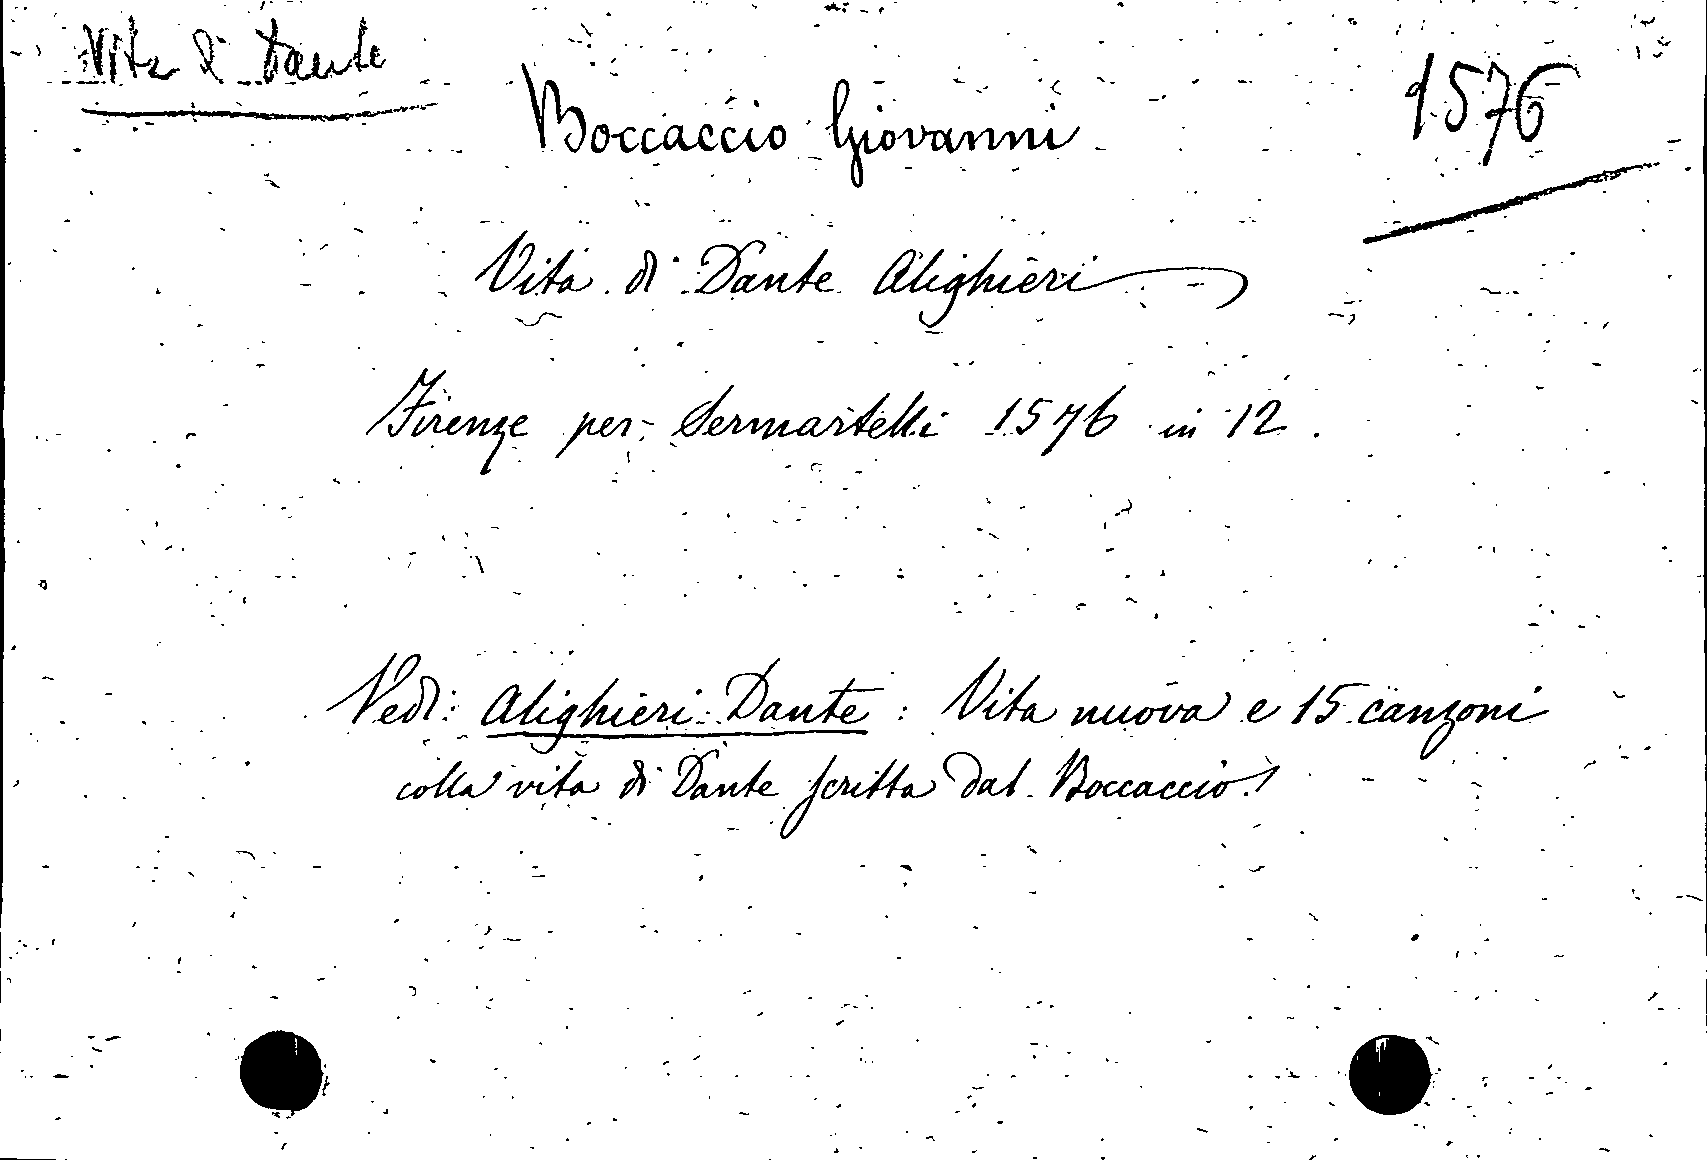 Vita di Dante
Boccaccio Giovanni
1576
Vita di Dante Alighieri
Firenze per Sermartelli 1576 in 12.
Vedi: Alighieri Dante: Vita nuova e 15 canzoni
colla vita di Dante scritta dal Boccaccio.